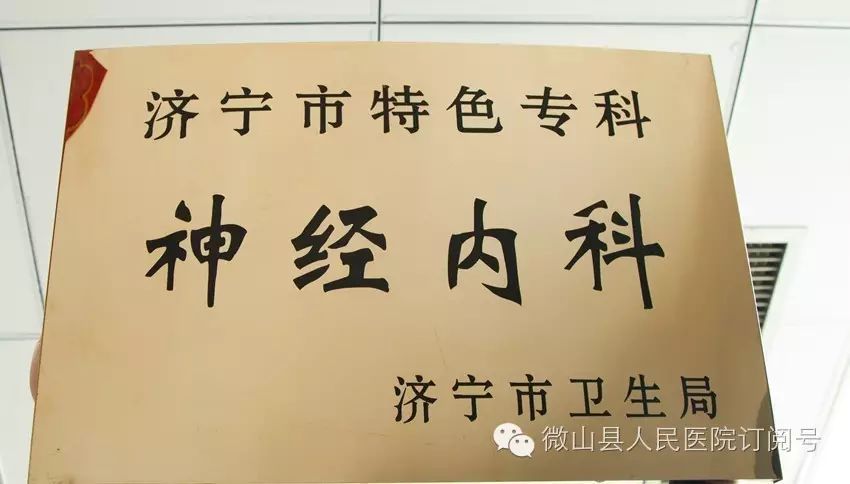 济宁市特色专科
神经内科
济宁市卫生局
微山县人民医院订阅号